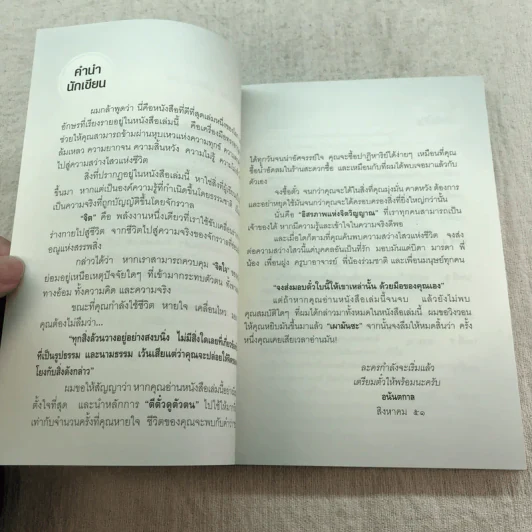 คำนำ
นักเขียน
ผมกล้าพูดว่า นี่คือหนังสือที่ดีที่สุดเล่มหนึ่ง
อักษรที่เรียงรายอยู่ในหนังสือเล่มนี้ คือเครื่องมือ
ช่วยให้คุณสามารถข้ามผ่านหุบเหวแห่งความทุกข์
ล้มเหลว ความยากจน ความสิ้นหวัง ความไม่รู้
ไปสู่ความสว่างไสวแห่งชีวิต
สิ่งที่ปรากฏอยู่ในหนังสือเล่มนี้ หาใช่สิ่งที่
ขึ้นมา หากแต่เป็นองค์ความรู้ที่กำเนิดขึ้นโดยธรรมชาติ
เป็นความจริงที่ถูกบัญญัติขึ้นโดยจักรวาล
"จิต" คือ พลังงานหนึ่งเดียวที่เราใช้ขับเคลื่อน
ร่างกายไปสู่ชีวิต จากชีวิตไปสู่ความจริงของจักรวาล
อณูแห่งสรรพสิ่ง
กล่าวได้ว่า หากเราสามารถควบคุม "จิตใจ"
ย่อมอยู่เหนือเหตุปัจจัยใดๆ ที่เข้ามากระทบตัวตน
ทางอ้อม ทั้งความคิด และความจริง
ขณะที่คุณกำลังใช้ชีวิต หายใจ เคลื่อนไหว
คุณต้องไม่ลืมว่า...
"ทุกสิ่งล้วนวางอยู่อย่างสงบนิ่ง ไม่มีสิ่งใดเลยที่เกี่ยวข้อง
ที่เป็นรูปธรรม และนามธรรม เว้นเสียแต่ว่าคุณจะปล่อยให้จิต
โยงกับสิ่งดังกล่าว"
ผมขอให้สัญญาว่า หากคุณอ่านหนังสือเล่มนี้อย่าง
ตั้งใจที่สุด และนำหลักการ "ตีตั๋วดูตัวตน" ไปใช้ให้มาก
เท่ากับจำนวนครั้งที่คุณหายใจ ชีวิตของคุณจะพบกับ
ได้ทุกวันจนน่าอัศจรรย์ใจ คุณจะซื้อปาฏิหาริย์ได้ง่ายๆ เหมือนที่คุณ
ซื้อน้ำอัดลมในร้านสะดวกซื้อ และเหมือนกับที่ผมได้พบเจอมาแล้วกับ
ตัวเอง
จงซื้อตั๋ว จนกว่าคุณจะได้ในสิ่งที่คุณมุ่งมั่น คาดหวัง ต้องการ
และอย่าหยุดใช้มันจนกว่าคุณจะได้ครอบครองสิ่งที่ยิ่งใหญ่กว่านั้น
นั่นคือ "อิสรภาพแห่งจิตวิญญาณ" ที่เราทุกคนสามารถเป็น
เจ้าของได้ หากมีความรู้และเข้าใจในความจริงดีพอ
และเมื่อใดก็ตามที่คุณค้นพบความสว่างไสวแห่งชีวิต จงส่ง
ต่อความสว่างไสวนี้ไปยังคนใกล้ชิดเป็นที่รัก มอบมันแด่บิดา มารดา พี่
น้อง เพื่อนฝูง ครูบาอาจารย์ พี่น้องร่วมชาติ และเพื่อนมนุษย์ทุกคน
"จงส่งมอบตั๋วใบนี้ให้เขาเหล่านั้น ด้วยมือของคุณเอง"
แต่ถ้าหากคุณอ่านหนังสือเล่มนี้จนจบ แล้วยังไม่พบ
คุณสมบัติใดๆ ที่ผมได้กล่าวมาทั้งหมดในหนังสือเล่มนี้ ผมขอวิงวอน
ให้คุณหยิบมันขึ้นมาแล้ว "เผามันซะ" จากนั้นจงลืมให้หมดสิ้นว่า ครั้ง
หนึ่งคุณเคยเสียเวลาอ่านมัน!
ละครกำลังจะเริ่มแล้ว
เตรียมตั๋วให้พร้อมนะครับ
อนันตกาล
สิงหาคม ๕๑